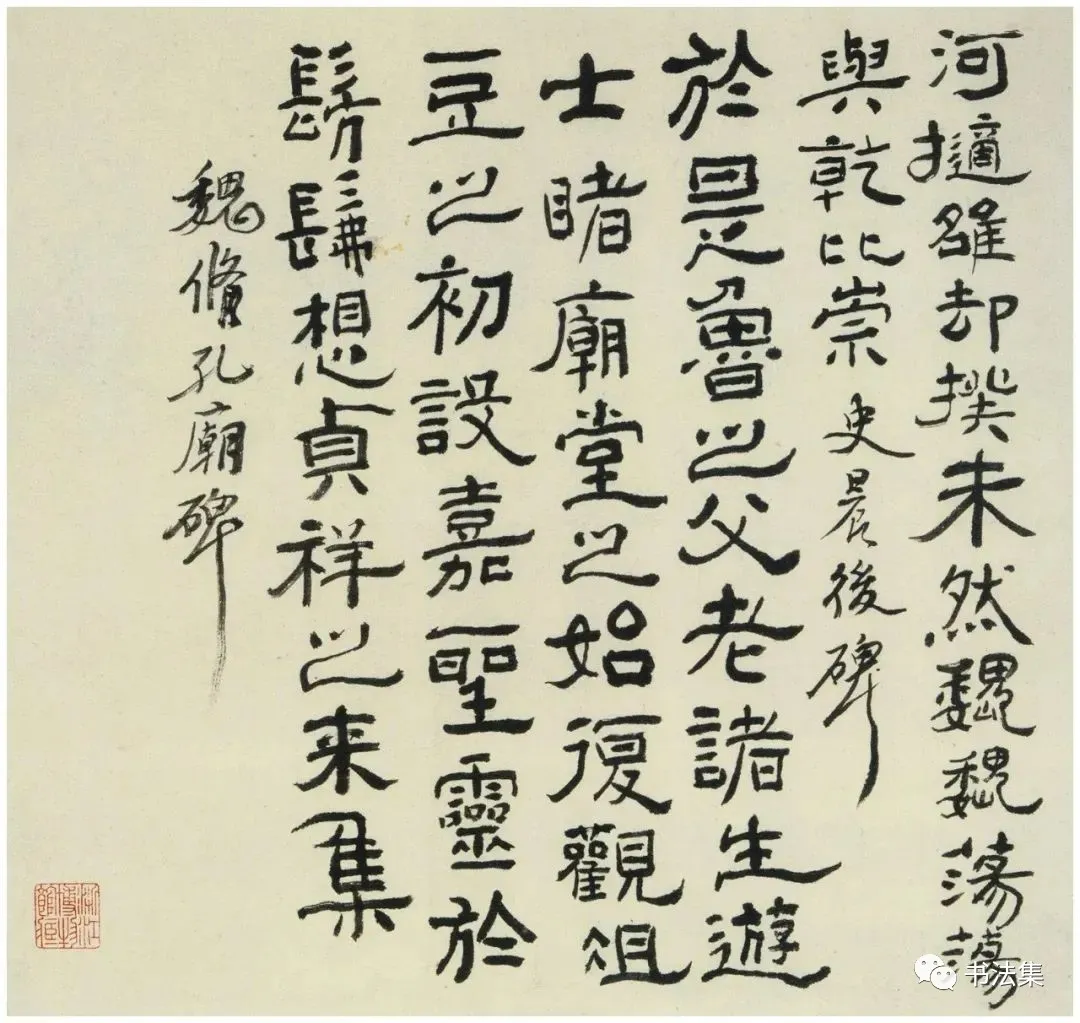 河擿雒却揆未然魏魏蕩蕩
與乾比崇 史晨後碑
於是魯之父老諸生遊
士睹廟堂之始復觀俎
豆之初設嘉聖靈於
髣髴想貞祥之来集
魏脩孔廟碑
浙江
博物
館
书法集